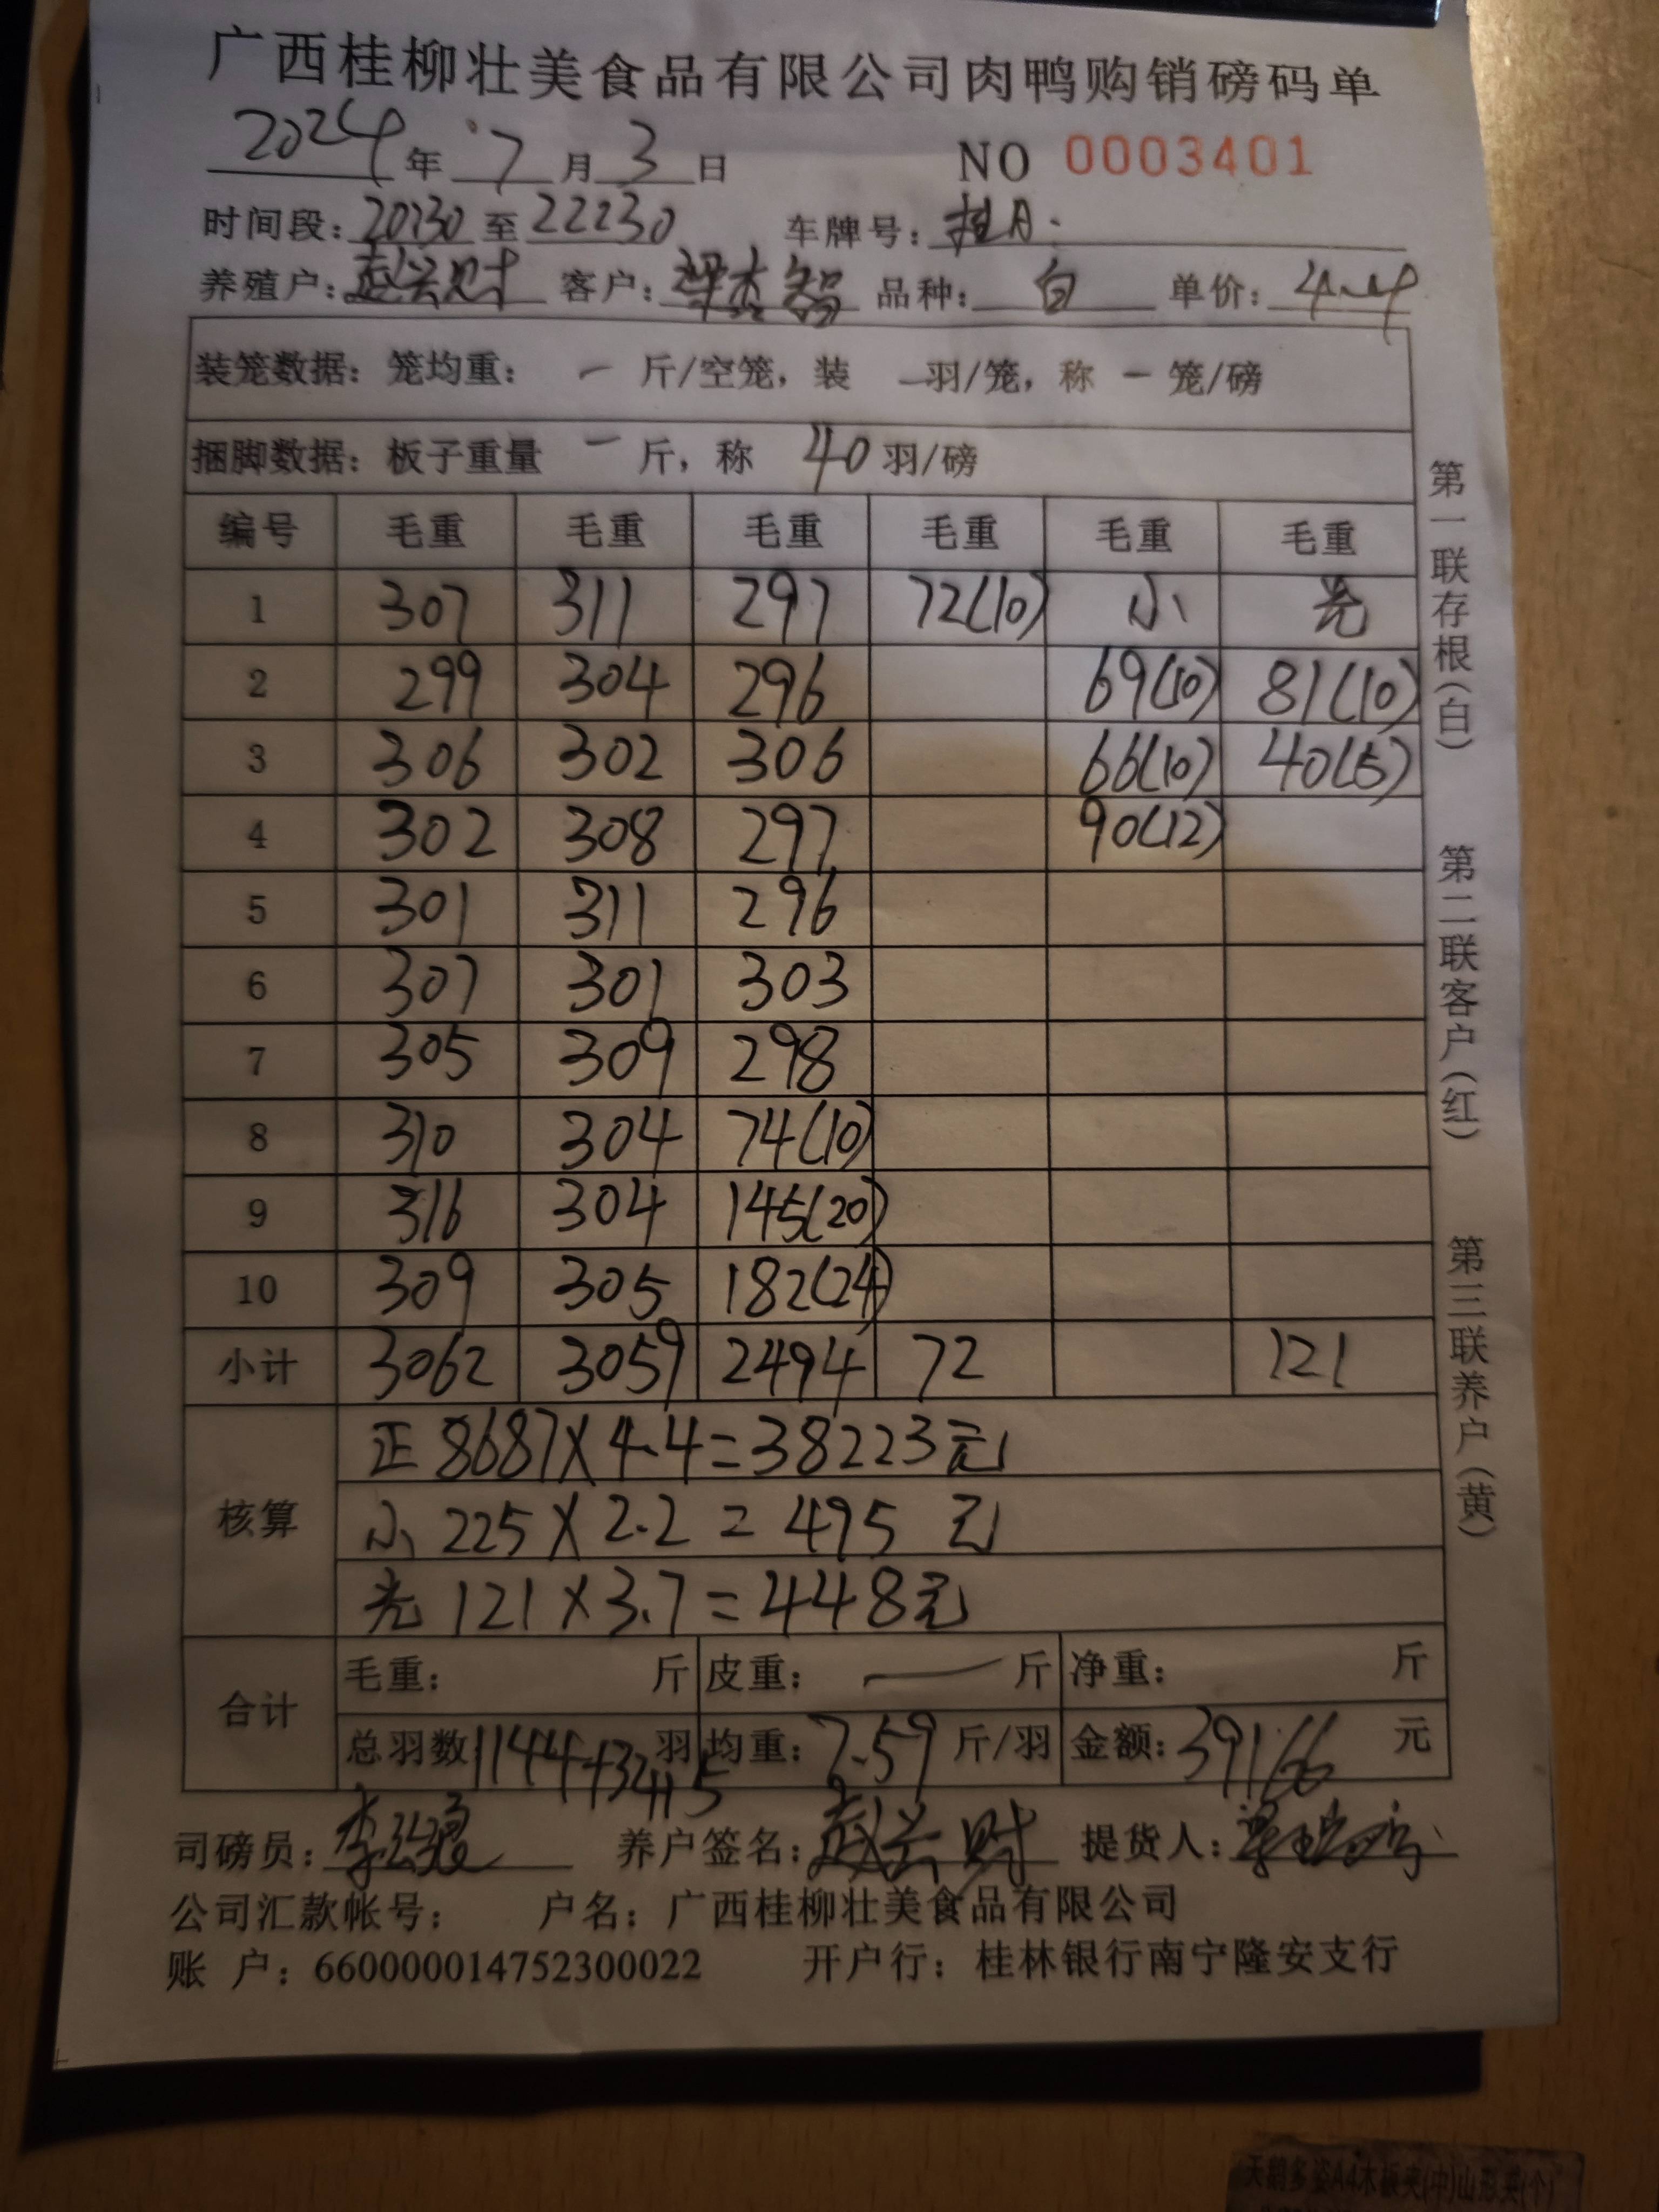 广西桂柳壮美食品有限公司肉鸭购销磅码单
2024年 7月 3日 NO 0003401
时间段：20:30 至 22:30 车牌号：
养殖户：赵兴财 客户： 品种：白 单价：4.4
装笼数据：笼均重： — 斤/空笼，装 — 羽/笼，称 — 笼/磅
捆脚数据：板子重量 — 斤，称 40 羽/磅
编号 毛重 毛重 毛重 毛重 毛重 毛重
1 307 311 297 72(10) 小 光
2 299 304 296 69(10) 81(10)
3 306 302 306 66(10) 40(5)
4 302 308 297 90(12)
5 301 311 296
6 307 301 303
7 305 309 298
8 310 304 74(10)
9 316 304 145(20)
10 309 305 182(24)
小计 3062 3059 2494 72 121
核算
正 8687×4.4=38223元
小 225×2.2=495元
光 121×3.7=448元
合计
毛重： 斤 皮重： — 斤 净重： 斤
总羽数1144+32+15羽 均重：7.59 斤/羽 金额：39166 元
司磅员： 养户签名：赵兴财 提货人：
公司汇款帐号： 户名：广西桂柳壮美食品有限公司
账 户：660000014752300022 开户行：桂林银行南宁隆安支行
第一联存根（白）
第二联客户（红）
第三联养户（黄）
天鹅多姿A4木板夹(中)山形夹(个)